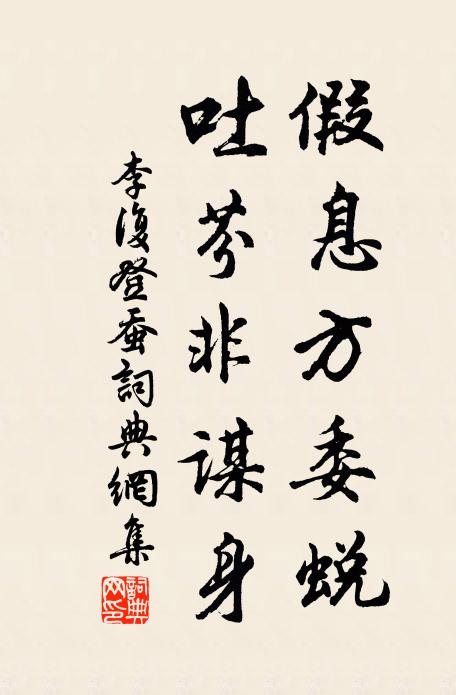 假息方委蜕
吐芬非谋身
李復登蚕詞典網集
詞典网印